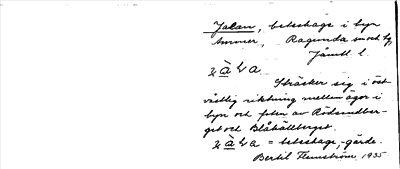 Jalan, beteshage i byn
Ammer, Ragunda
Jämtl. l.
Sträcker sig i öst
västlig riktning mellan ägor i
byn och foten av Rödsundber-
get och Blåhällberget.
= beteshage, -gärde.
Bertil Flemström 1935